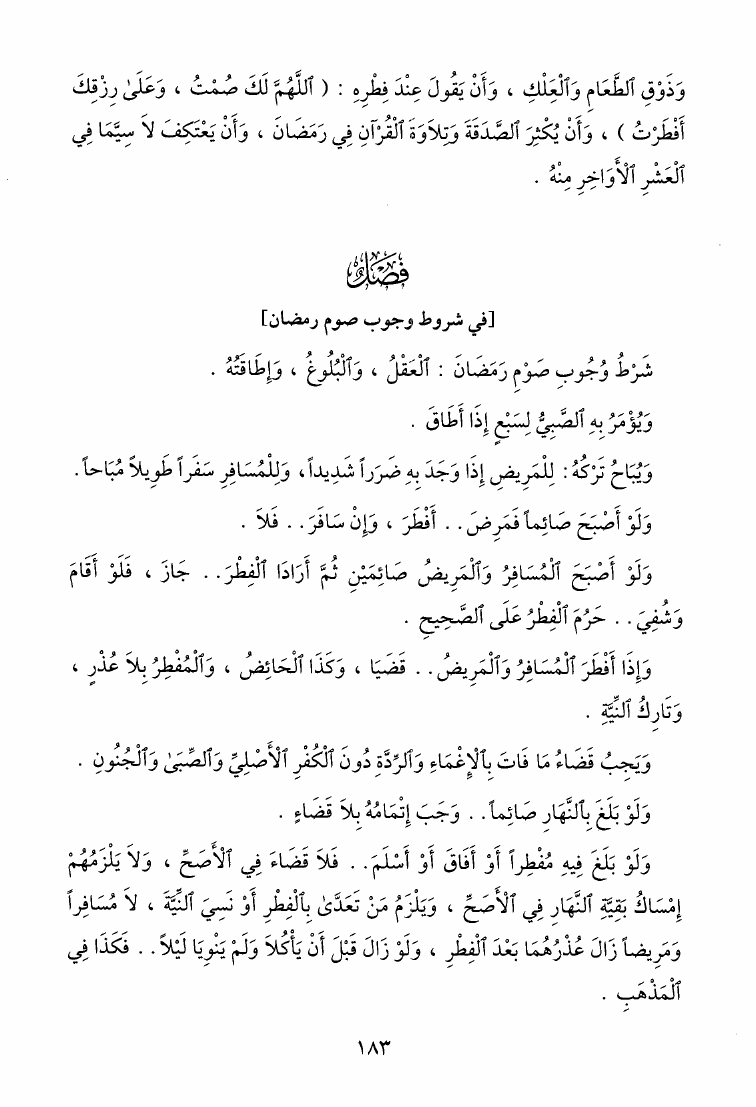 وَذَوْقِ ٱلطَّعَامِ وَٱلْعِلْكِ ، وَأَنْ يَقُولَ عِنْدَ فِطْرِهِ : ( ٱللَّهُمَّ لَكَ صُمْتُ ، وَعَلَىٰ رِزْقِكَ
أَفْطَرْتُ ) ، وَأَنْ يُكْثِرَ ٱلصَّدَقَةَ وَتِلاَوَةَ ٱلْقُرْآنِ فِي رَمَضَانَ ، وَأَنْ يَعْتَكِفَ لاَ سِيَّمَا فِي
ٱلْعَشْرِ ٱلأَوَاخِرِ مِنْهُ .
فَصْلٌ
[في شروط وجوب صوم رمضان]
شَرْطُ وُجُوبِ صَوْمِ رَمَضَانَ : ٱلْعَقْلُ ، وَٱلْبُلُوغُ ، وَإِطَاقَتُهُ .
وَيُؤْمَرُ بِهِ ٱلصَّبِيُّ لِسَبْعٍ إِذَا أَطَاقَ .
وَيُبَاحُ تَرْكُهُ : لِلْمَرِيضِ إِذَا وَجَدَ بِهِ ضَرَراً شَدِيداً ، وَلِلْمُسَافِرِ سَفَراً طَوِيلاً مُبَاحاً .
وَلَوْ أَصْبَحَ صَائِماً فَمَرِضَ . . أَفْطَرَ ، وَإِنْ سَافَرَ . . فَلاَ .
وَلَوْ أَصْبَحَ ٱلْمُسَافِرُ وَٱلْمَرِيضُ صَائِمَيْنِ ثُمَّ أَرَادَا ٱلْفِطْرَ . . جَازَ ، فَلَوْ أَقَامَ
وَشُفِيَ . . حَرُمَ ٱلْفِطْرُ عَلَى ٱلصَّحِيحِ .
وَإِذَا أَفْطَرَ ٱلْمُسَافِرُ وَٱلْمَرِيضُ . . قَضَيَا ، وَكَذَا ٱلْحَائِضُ ، وَٱلْمُفْطِرُ بِلاَ عُذْرٍ ،
وَتَارِكُ ٱلنِّيَّةِ .
وَيَجِبُ قَضَاءُ مَا فَاتَ بِٱلإِغْمَاءِ وَٱلرِّدَّةِ دُونَ ٱلْكُفْرِ ٱلأَصْلِيِّ وَٱلصِّبَىٰ وَٱلْجُنُونِ .
وَلَوْ بَلَغَ بِٱلنَّهَارِ صَائِماً . . وَجَبَ إِتْمَامُهُ بِلاَ قَضَاءٍ .
وَلَوْ بَلَغَ فِيهِ مُفْطِراً أَوْ أَفَاقَ أَوْ أَسْلَمَ . . فَلاَ قَضَاءَ فِي ٱلأَصَحِّ ، وَلاَ يَلْزَمُهُمْ
إِمْسَاكُ بَقِيَّةِ ٱلنَّهَارِ فِي ٱلأَصَحِّ ، وَيَلْزَمُ مَنْ تَعَدَّىٰ بِٱلْفِطْرِ أَوْ نَسِيَ ٱلنِّيَّةَ ، لاَ مُسَافِراً
وَمَرِيضاً زَالَ عُذْرُهُمَا بَعْدَ ٱلْفِطْرِ ، وَلَوْ زَالَ قَبْلَ أَنْ يَأْكُلاَ وَلَمْ يَنْوِيَا لَيْلاً . . فَكَذَا فِي
ٱلْمَذْهَبِ .
١٨٣